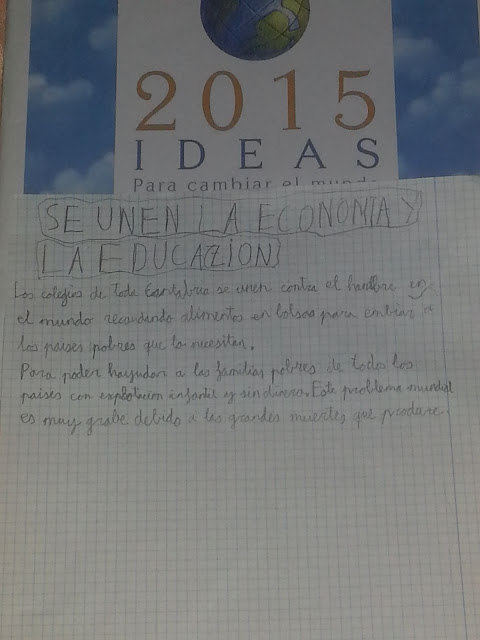 2015
IDEAS
Para cambiar el mundo
SE UNEN LA ECONOMIA Y
LA EDUCAZION
Los colejios de toda Cantabria se unen contra el hambre en
el mundo recaudando alimentos en bolsas para embiar a
los paises pobres que lo necesitan.
Para poder hayudar a las familias pobres de todos los
paises con explotacion infantil y sin dinero. Este problema mundial
es muy grabe debido a las grandes muertes que produce.